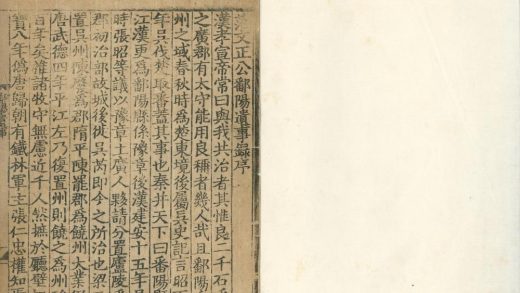 范文正公鄱陽遺事錄序
漢孝宣帝常曰與我共治者其惟良二千石
之廣郡有太守能用良稱者幾人哉且鄱陽
州之域春秋時為楚東境後屬吳史記言昭王
年吳伐楚取番蓋其事也秦并天下曰番陽縣
江漢更為鄱陽縣係豫章後漢建安十五年吳
時張昭等議以豫章土廣人夥請分置廬陵鄱
郡初治部故城後徙吳芮即今之所治也梁
置吳州陳廢為郡隋平陳罷郡為饒州大業
唐武德四年平江左乃復置州則饒之為州
百年矣準諸牧守無慮近千人然摭於聽壁
寶八年偽唐歸朝有鐵林軍主張仁忠權知